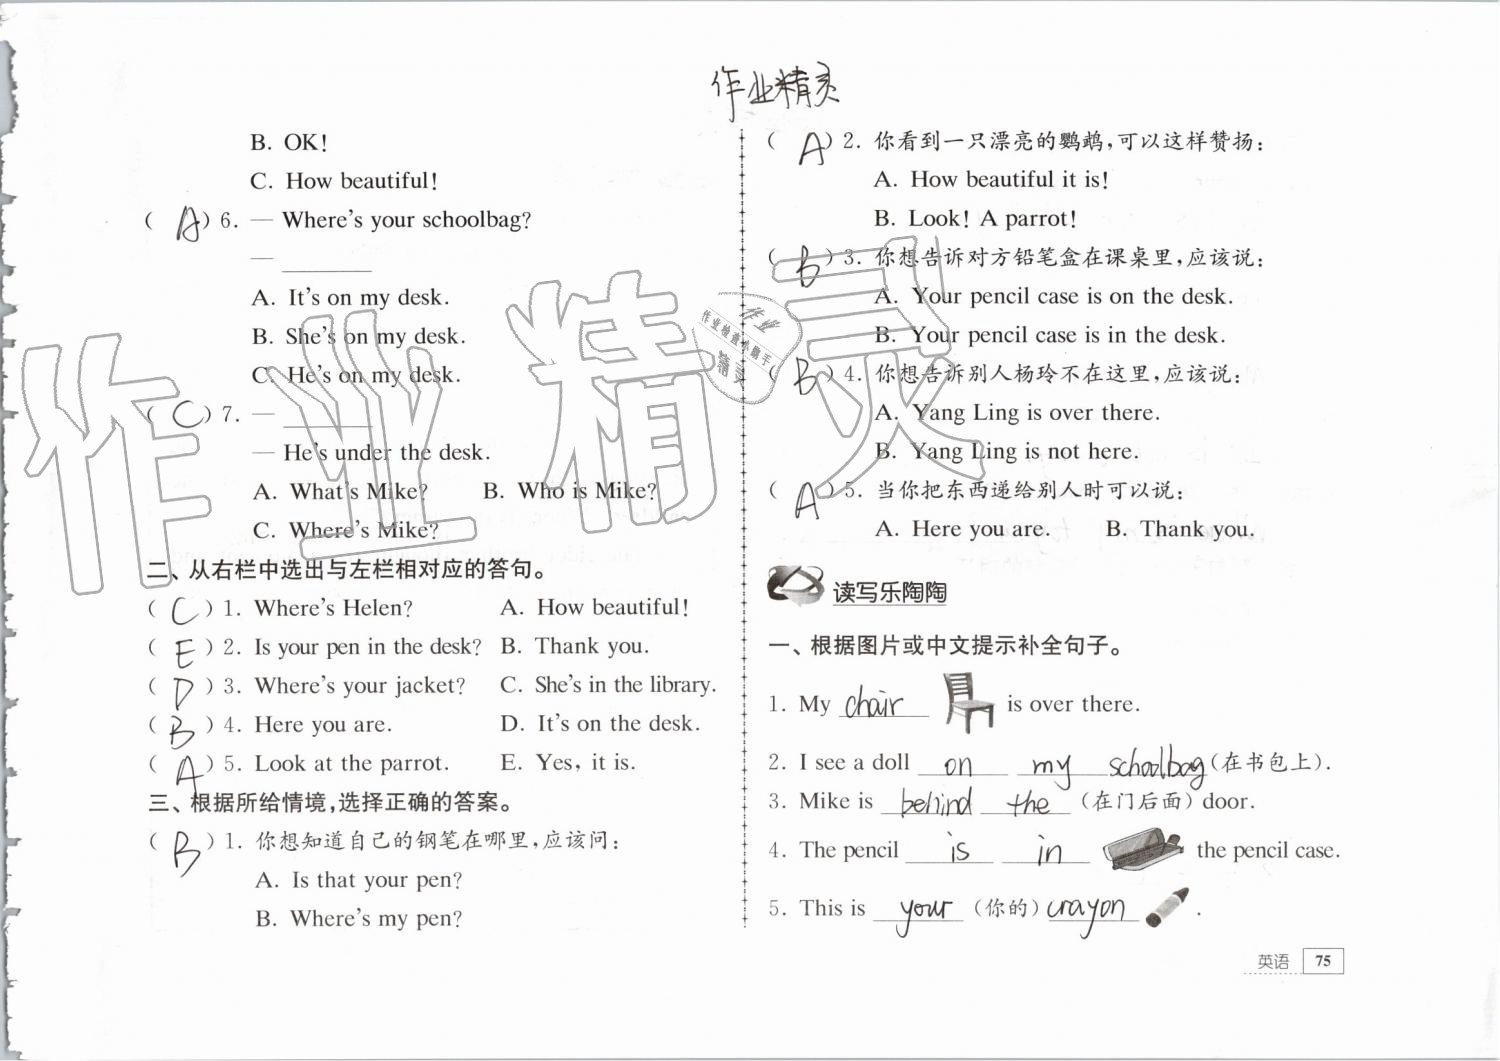 作业精灵
B. OK!
C. How beautiful!
( A ) 6. — Where's your schoolbag?
— ________
A. It's on my desk.
B. She's on my desk.
C. He's on my desk.
( C ) 7. — ________
— He's under the desk.
A. What's Mike? B. Who is Mike?
C. Where's Mike?
二、从右栏中选出与左栏相对应的答句。
( C ) 1. Where's Helen? A. How beautiful!
( E ) 2. Is your pen in the desk? B. Thank you.
( D ) 3. Where's your jacket? C. She's in the library.
( B ) 4. Here you are. D. It's on the desk.
( A ) 5. Look at the parrot. E. Yes, it is.
三、根据所给情境,选择正确的答案。
( B ) 1. 你想知道自己的钢笔在哪里,应该问:
A. Is that your pen?
B. Where's my pen?
( A ) 2. 你看到一只漂亮的鹦鹉,可以这样赞扬:
A. How beautiful it is!
B. Look! A parrot!
( B ) 3. 你想告诉对方铅笔盒在课桌里,应该说:
A. Your pencil case is on the desk.
B. Your pencil case is in the desk.
( B ) 4. 你想告诉别人杨玲不在这里,应该说:
A. Yang Ling is over there.
B. Yang Ling is not here.
( A ) 5. 当你把东西递给别人时可以说:
A. Here you are. B. Thank you.
读写乐陶陶
一、根据图片或中文提示补全句子。
1. My chair is over there.
2. I see a doll on my schoolbag (在书包上).
3. Mike is behind the (在门后面) door.
4. The pencil is in the pencil case.
5. This is your (你的) crayon .
英语 75
作业精灵
作业
作业检查小助手
精灵